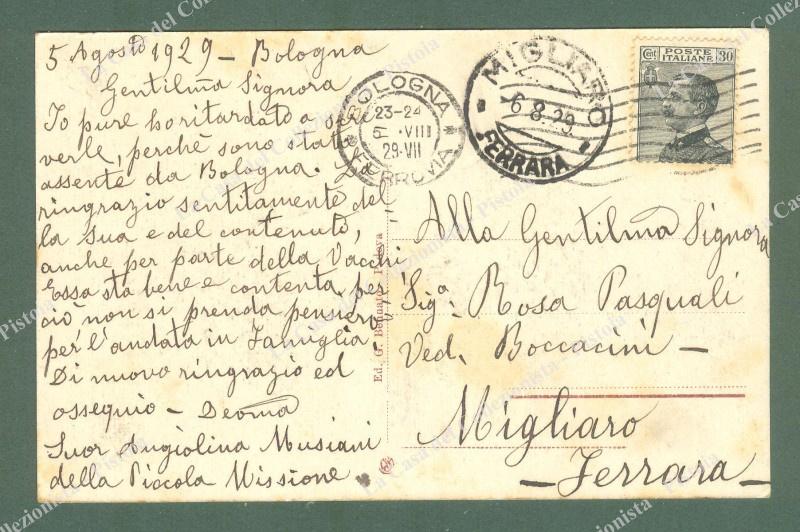 5 Agosto 1929 - Bologna
Gentilma Signora
Io pure ho ritardato a scri
verle, perchè sono stata
assente da Bologna. La
ringrazio sentitamente del
la sua e del contenuto,
anche per parte della Vacchi
Essa sta bene e contenta, per
ciò non si prenda pensieri
per l'andata in Famiglia.
Di nuovo ringrazio ed
ossequio - Devma
Suor Angiolina Musiani
della Piccola Missione
BOLOGNA
23-24
5 · VIII
29·VII
FERROVIA
MIGLIARO
6.8.29
FERRARA
Cent POSTE ITALIANE 30
Alla Gentilma Signora
Siga. Rosa Pasquali
Ved. Boccacini -
Migliaro
- Ferrara -
Ed. G. Bonnato, Padova
La Casa del Collezionista - Pistoia